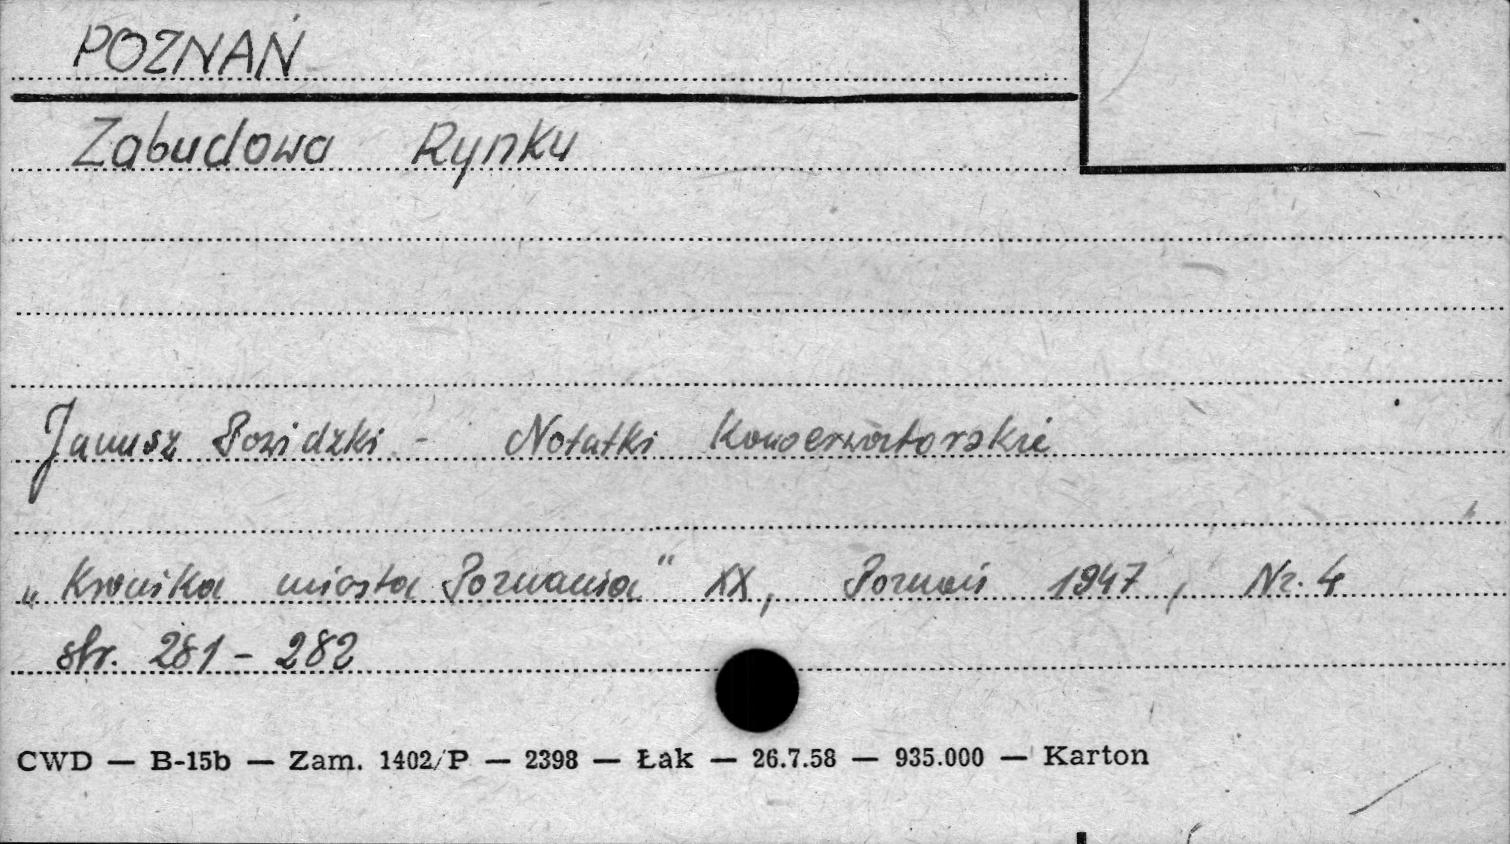 POZNAŃ
Zabudowa Rynku
Janusz Powidzki - Notatki Konserwatorskie
„Kronika miasta Poznania" XX, Poznań 1947, Nr. 4
str. 281 - 282
CWD — B-15b — Zam. 1402/P — 2398 — Łak — 26.7.58 — 935.000 — Karton